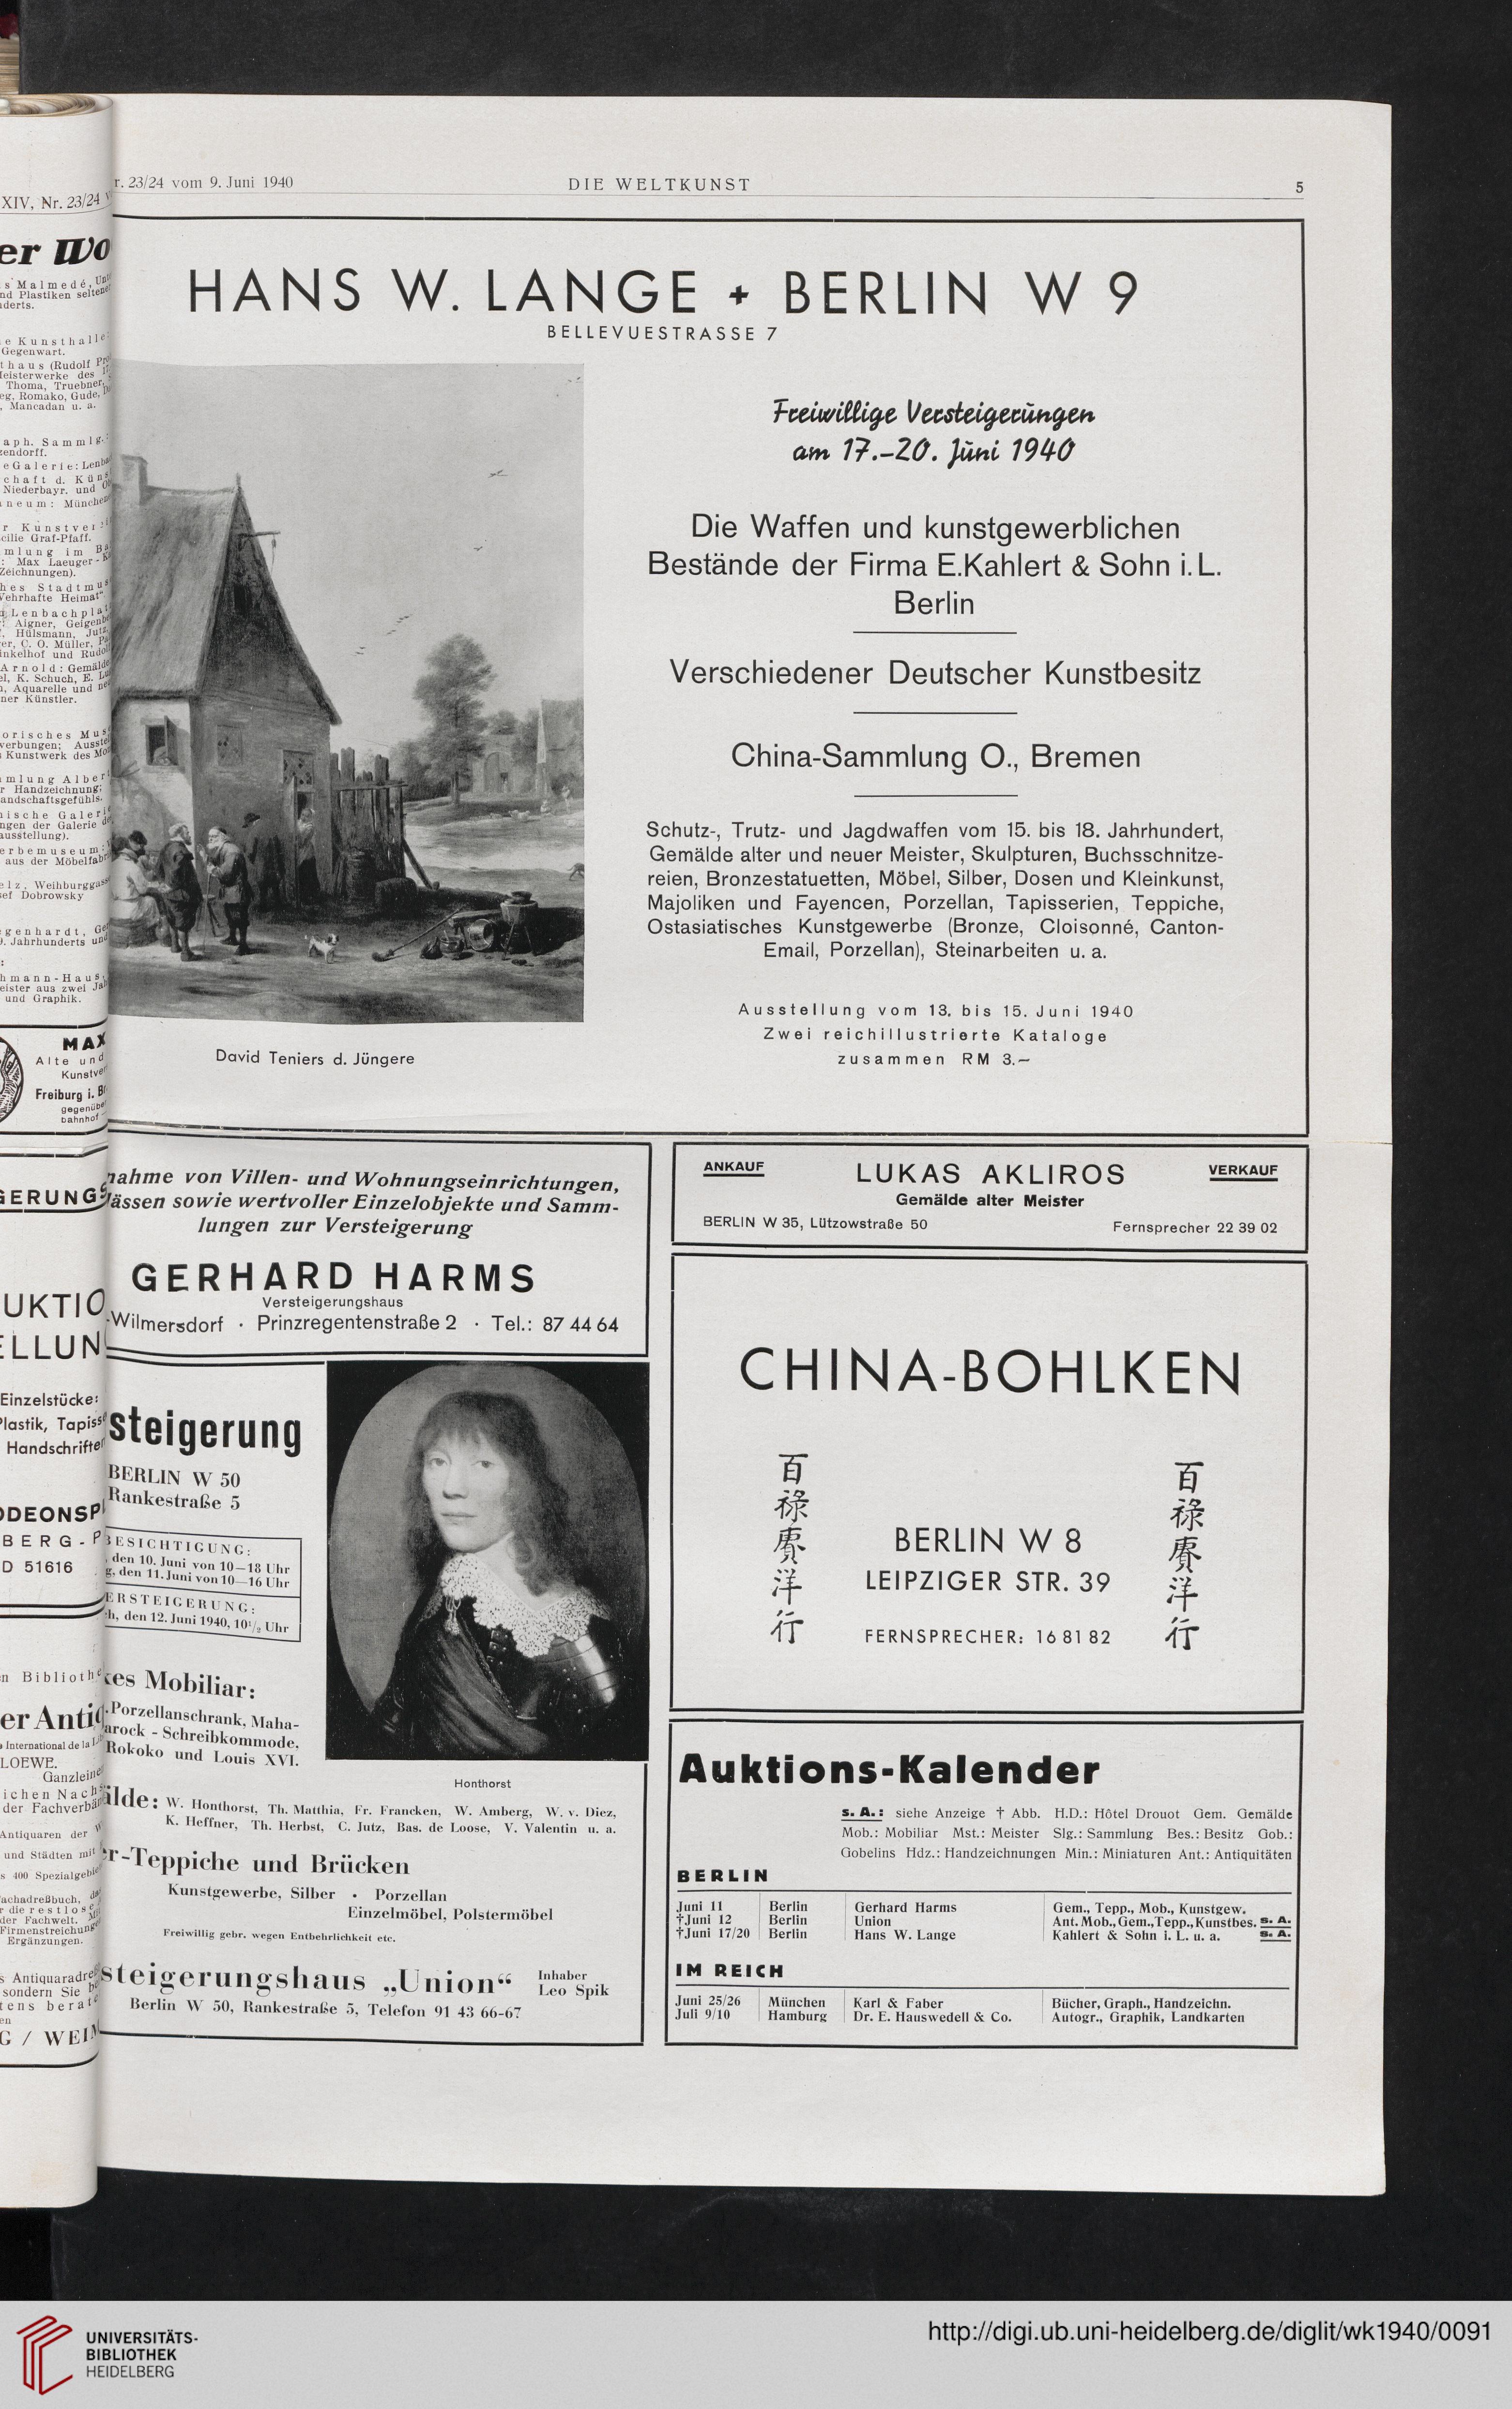 XIV, Nr. 23/24
er Wo
s Malmedé,
nd Plastiken
derts.
e Kunsthalle
Gegenwart.
thaus (Rudolf
leisterwerke des
Thoma, Truebner,
eg, Romako, Gude,
, Mancadan u. a.
aph. Sammlg.:
zendorff.
eGalerie: Lenba
chaft d. Küns
Niederbayr. und
neum: Münche
r Kunstver
cilie Graf-Pfaff.
mlung im
: Max Laeuger-
Zeichnungen).
hes Stadtmus
Wehrhafte Heimat".
Lenbachplat
: Aigner, Geigenb
, Hülsmann, Jutz,
er, C. O. Müller,
inkelhof und Rudol
Arnold: Gemälde
el, K. Schuch, E.
, Aquarelle und
ner Künstler.
orisches Mus
werbungen; Ausstel
Kunstwerk des
mlung Albert
r Handzeichnung;
andschaftsgefühls.
ische Galerie
ngen der Galerie
ausstellung).
erbemuseum:
aus der Möbelfabr
elz, Weihburggasse
sef Dobrowsky
genhardt,
9. Jahrhunderts und
hmann-Haus,
eister aus zwei
und Graphik.
MAX
Alte und
Kunstve
Freiburg i. Br
gegenübe
bahnhof
GERUNGS
UKTIO
ELLUN
Einzelstücke:
Plastik, Tapiss
Handschriften
ODEONSPL
BERG-P
D 51616
n Biblioth
er Antiq
International de la
LOEWE.
Ganzleine
ichen Nach
der Fachverbän
Antiquaren der
und Städten mit
s 400 Spezialgebie
achadreßbuch,
r die restlose
der Fachwelt.
Firmenstreichung
Ergänzungen.
s Antiquaradreß
sondern Sie
tens berat
en
G / WEIM
r. 23/24 vom 9. Juni 1940
DIE WELTKUNST
5
HANS W. LANGE + BERLIN W 9
BELLEVUESTRASSE 7
Freiwillige Versteigerungen
am 17.–20. Juni 1940
Die Waffen und kunstgewerblichen
Bestände der Firma E.Kahlert & Sohn i.L.
Berlin
Verschiedener Deutscher Kunstbesitz
China-Sammlung O., Bremen
Schutz-, Trutz- und Jagdwaffen vom 15. bis 18. Jahrhundert,
Gemälde alter und neuer Meister, Skulpturen, Buchsschnitze-
reien, Bronzestatuetten, Möbel, Silber, Dosen und Kleinkunst,
Majoliken und Fayencen, Porzellan, Tapisserien, Teppiche,
Ostasiatisches Kunstgewerbe (Bronze, Cloisonné, Canton-
Email, Porzellan), Steinarbeiten u. a.
Ausstellung vom 13. bis 15. Juni 1940
Zwei reichillustrierte Kataloge
zusammen RM 3.—
David Teniers d. Jüngere
nahme von Villen- und Wohnungseinrichtungen,
lässen sowie wertvoller Einzelobjekte und Samm-
lungen zur Versteigerung
GERHARD HARMS
Versteigerungshaus
-Wilmersdorf · Prinzregentenstraße 2 · Tel.: 87 44 64
steigerung
BERLIN W 50
Rankestraße 5
BESICHTIGUNG:
, den 10. Juni von 10—18 Uhr
g, den 11. Juni von 10—16 Uhr
ERSTEIGERUNG:
h, den 12. Juni 1940, 10½ Uhr
kes Mobiliar:
-Porzellanschrank, Maha-
arock - Schreibkommode,
Rokoko und Louis XVI.
Honthorst
älde: W. Honthorst, Th. Matthia, Fr. Francken, W. Amberg, W. v. Diez,
K. Heffner, Th. Herbst, C. Jutz, Bas. de Loose, V. Valentin u. a.
r-Teppiche und Brücken
Kunstgewerbe, Silber • Porzellan
Einzelmöbel, Polstermöbel
Freiwillig gebr. wegen Entbehrlichkeit etc.
steigerungshaus „Union“ Inhaber
Leo Spik
Berlin W 50, Rankestraße 5, Telefon 91 43 66-67
ANKAUF
LUKAS AKLIROS
VERKAUF
Gemälde alter Meister
BERLIN W 35, Lützowstraße 50
Fernsprecher 22 39 02
CHINA-BOHLKEN
百祿賡洋行
百祿賡洋行
BERLIN W 8
LEIPZIGER STR. 39
FERNSPRECHER: 16 81 82
Auktions-Kalender
s. A.: siehe Anzeige † Abb. H.D.: Hôtel Drouot Gem. Gemälde
Mob.: Mobiliar Mst.: Meister Slg.: Sammlung Bes.: Besitz Gob.:
Gobelins Hdz.: Handzeichnungen Min.: Miniaturen Ant.: Antiquitäten
BERLIN
Juni 11 Berlin Gerhard Harms Gem., Tepp., Mob., Kunstgew.
†Juni 12 Berlin Union Ant. Mob., Gem., Tepp., Kunstbes. s. A.
†Juni 17/20 Berlin Hans W. Lange Kahlert & Sohn i. L. u. a. s. A.
IM REICH
Juni 25/26 München Karl & Faber Bücher, Graph., Handzeichn.
Juli 9/10 Hamburg Dr. E. Hauswedell & Co. Autogr., Graphik, Landkarten
UNIVERSITÄTS-
BIBLIOTHEK
HEIDELBERG
http://digi.ub.uni-heidelberg.de/diglit/wk1940/0091